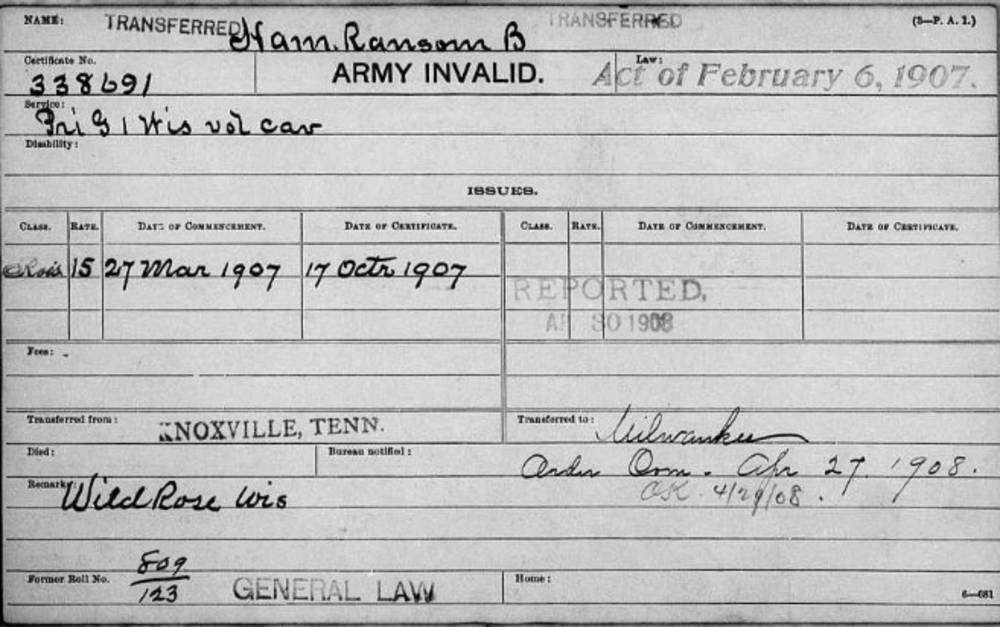 NAME: TRANSFERRED Ham. Ransom B TRANSFERRED (3—P. A. I.)
Certificate No. 338691 ARMY INVALID. Law: Act of February 6, 1907.
Service: Pri G 1 Wis vol cav
Disability:
ISSUES.
CLASS. RATE. DATE OF COMMENCEMENT. DATE OF CERTIFICATE. CLASS. RATE. DATE OF COMMENCEMENT. DATE OF CERTIFICATE.
15 27 Mar 1907 17 Octr 1907
REPORTED.
AP 30 1908
Fees:
Transferred from: KNOXVILLE, TENN. Transferred to: Milwaukee
Died: Bureau notified: Order Com. Apr 27. 1908.
Remarks: Wild Rose Wis O.K. 4/29/08.
Former Roll No. 809/123 GENERAL LAW Home: 6—681